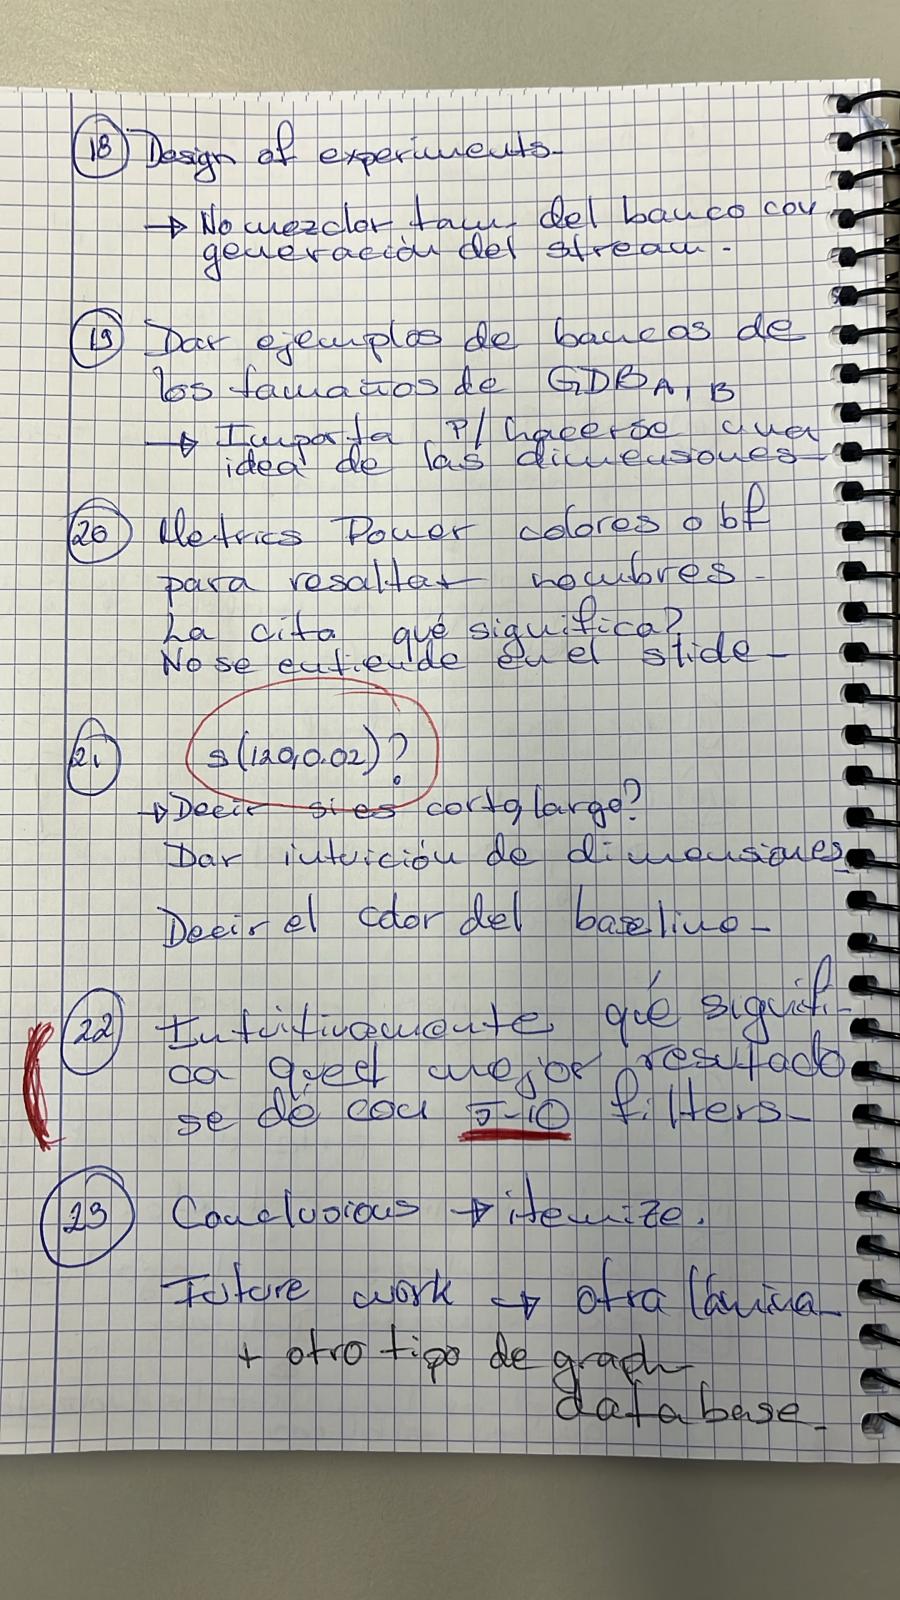 18 Design of experiments-
→ No mezclar tam. del banco con
generación del stream-
19 Dar ejemplos de bancos de
los tamaños de GDB A, B
→ Importa p/ hacerse una
idea de las dimensiones-
20 Metrics Power colores o bf
para resaltar nombres-
La cita qué significa?
No se entiende en el slide-
21 s(120,0.02)?
→ Decir si es corto, largo?
Dar intuición de dimensiones
Decir el color del baseline-
22 Intuitivamente, qué signifi-
ca que el mejor resultado
se dé con 5-10 filters-
23 Conclusions → itemize.
Future work → otra lámina-
+ otro tipo de graph
database-